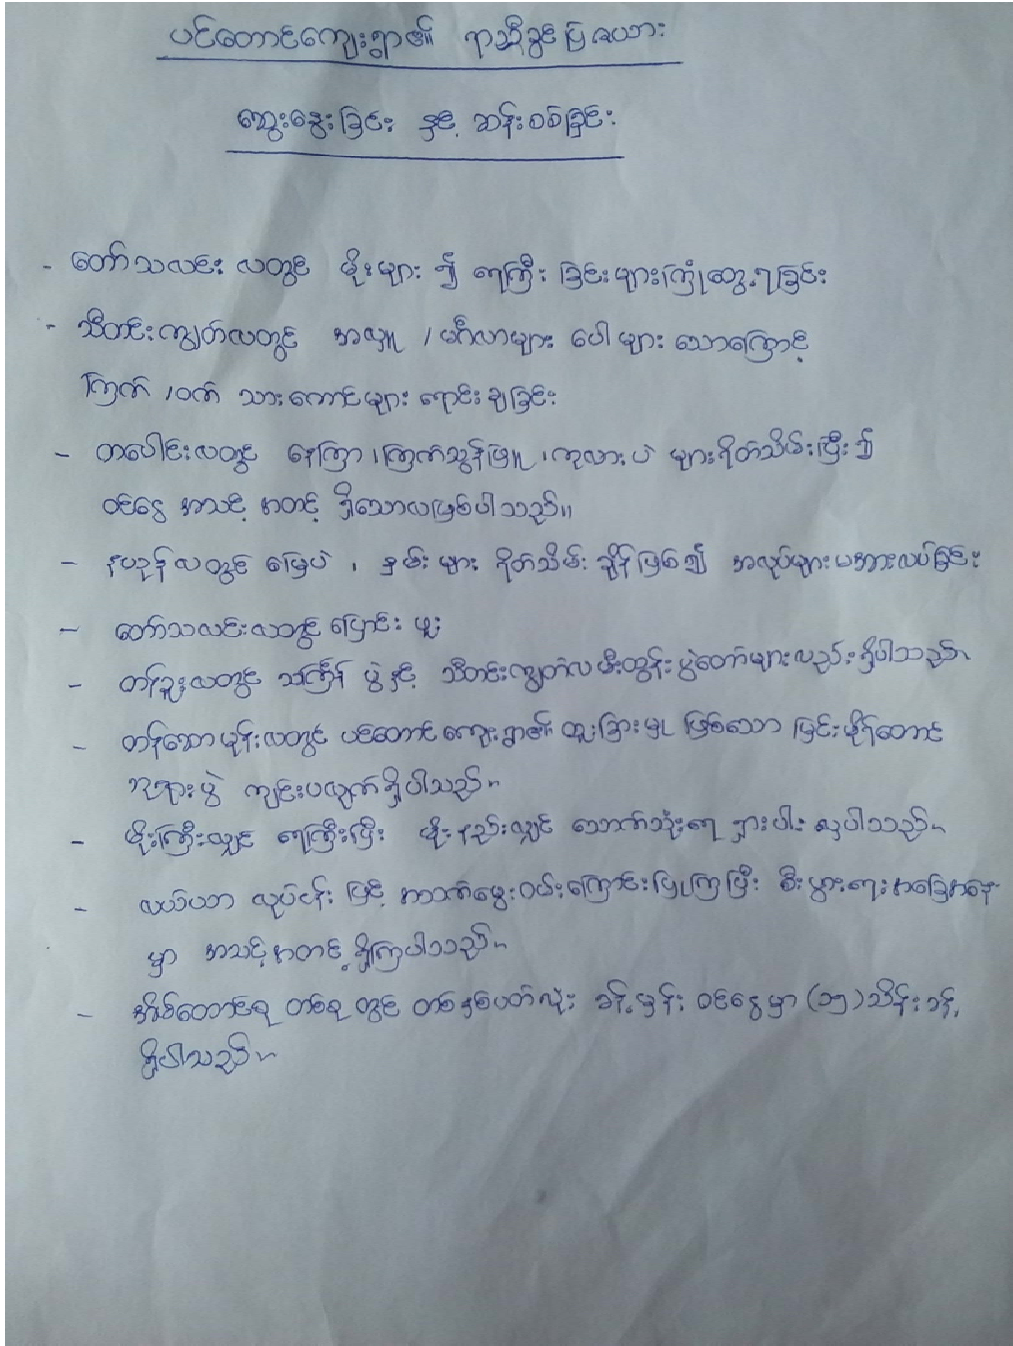 ပင်တောင်ကျေးရွာ၏ ရာသီခွင်ပြဇယား
ဆွေးနွေးခြင်း နှင့် ဆန်းစစ်ခြင်း
- တော်သလင်း လတွင် မိုးများ ၍ ရေကြီး ခြင်းများကြုံတွေ့ရခြင်း
- သီတင်းကျွတ်လတွင် အလှူ /မင်္ဂလာများ ပေါများ သောကြောင့်
ကြက် /ဝက် သားကောင်များ ရောင်းချခြင်း
- တပေါင်းလတွင် နေကြာ ၊ကြက်သွန်ဖြူ ၊ကုလားပဲ များရိတ်သိမ်းပြီး၍
ဝင်ငွေ အသင့် အတင့် ရှိသောလဖြစ်ပါသည်။
- နယုန်လတွင် မြေပဲ ၊ နှမ်းများ ရိတ်သိမ်း ချိန်ဖြစ်၍ အလုပ်များမအားလပ်ခြင်း
- တော်သလင်းလတွင် ပြောင်း ဖူး
- တန်ခူးလတွင် သင်္ကြန် ပွဲ နှင့် သီတင်းကျွတ်လ မီးထွန်း ပွဲတော်များလည်း ရှိပါသည်။
- တန်ဆောမုန်းလတွင် ပင်တောင် ကျေးရွာ၏ ထူးခြားမှု ဖြစ်သော မြင်းမိုရ်တောင်
ဘုရားပွဲ ကျင်းပလျက်ရှိပါသည်။
- မိုးကြီးလျှင် ရေကြီးပြီး မိုးနည်းလျှင် သောက်သုံးရေ ရှားပါး လှပါသည်။
- လယ်ယာ လုပ်ငန်း ဖြင့် အသက်မွေးဝမ်းကြောင်းပြုကြပြီး စီးပွားရေးအခြေအနေ
မှာ အသင့်အတင့် ရှိကြပါသည်။
- အိမ်ထောင်စု တစ်စု တွင် တစ်နှစ်ပတ်လုံး ခန့်မှန်း ဝင်ငွေမှာ (၁၅) သိန်းခန့်
ရှိပါသည်။